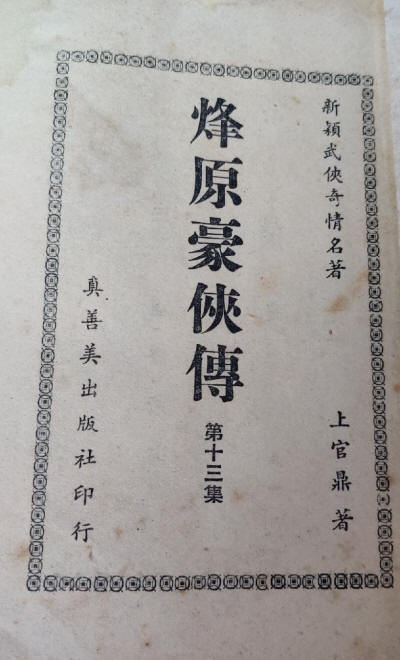 新穎武俠奇情名著
上官鼎著
烽原豪俠傳
第十三集
真善美出版社印行